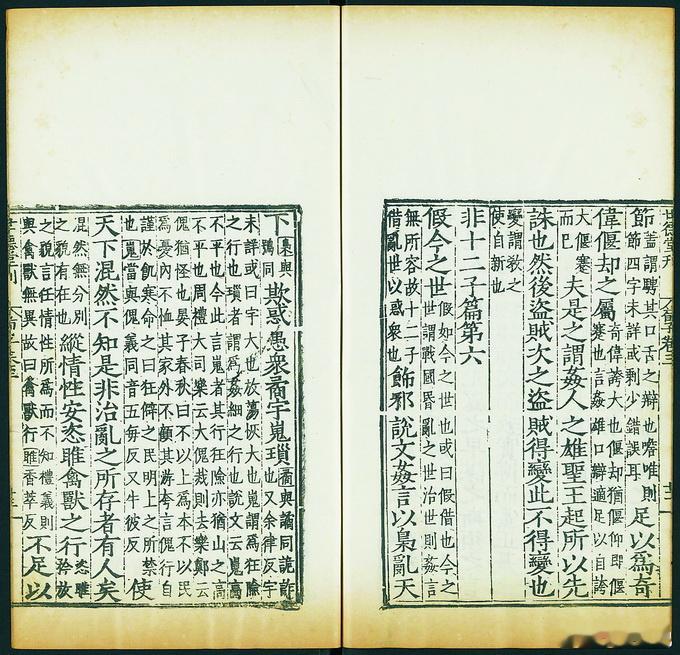 世德堂刊 荀子卷三 廿二
節蓋謂騁其口舌之辯也噡唯則節四字未詳或剩少錯誤耳足以爲奇
偉偃却之屬奇偉誇大也偃却猶偃仰即偃蹇也言姦雄口辯適足以自誇
大偃蹇而已夫是之謂姦人之雄聖王起所以先
誅也然後盜賊次之盜賊得變此不得變也
變謂教之使自新也
非十二子篇第六
假今之世假如今之世也或曰假借也今之世謂戰國昬亂之世治世則姦言
無所容故十二子借亂世以惑衆也飾邪說文姦言以梟亂天
下梟與撓同欺惑愚衆矞宇嵬瑣矞與譎同詭詐也又余律反宇
未詳或曰宇大也放蕩恢大也嵬謂爲狂險之行也瑣者謂爲姦細之行也說文云嵬高
不平也今此言嵬者其行狂險亦猶山之高不平也周禮大司樂云大傀烖則去樂鄭云
傀猶怪也晏子春秋曰不以上爲本不以民爲憂內不恤其家外不顧其游夸言傀行自
謹於飢寒命之曰狂僻之民明上之所禁也嵬當與傀義同音五每反又牛彼反使
天下混然不知是非治亂之所存者有人矣
混然無分別之貌存在也縱情性安恣睢禽獸之行恣睢矜放
之貌言任情性所爲而不知禮義則與禽獸無異故曰禽獸行睢香萃反不足以